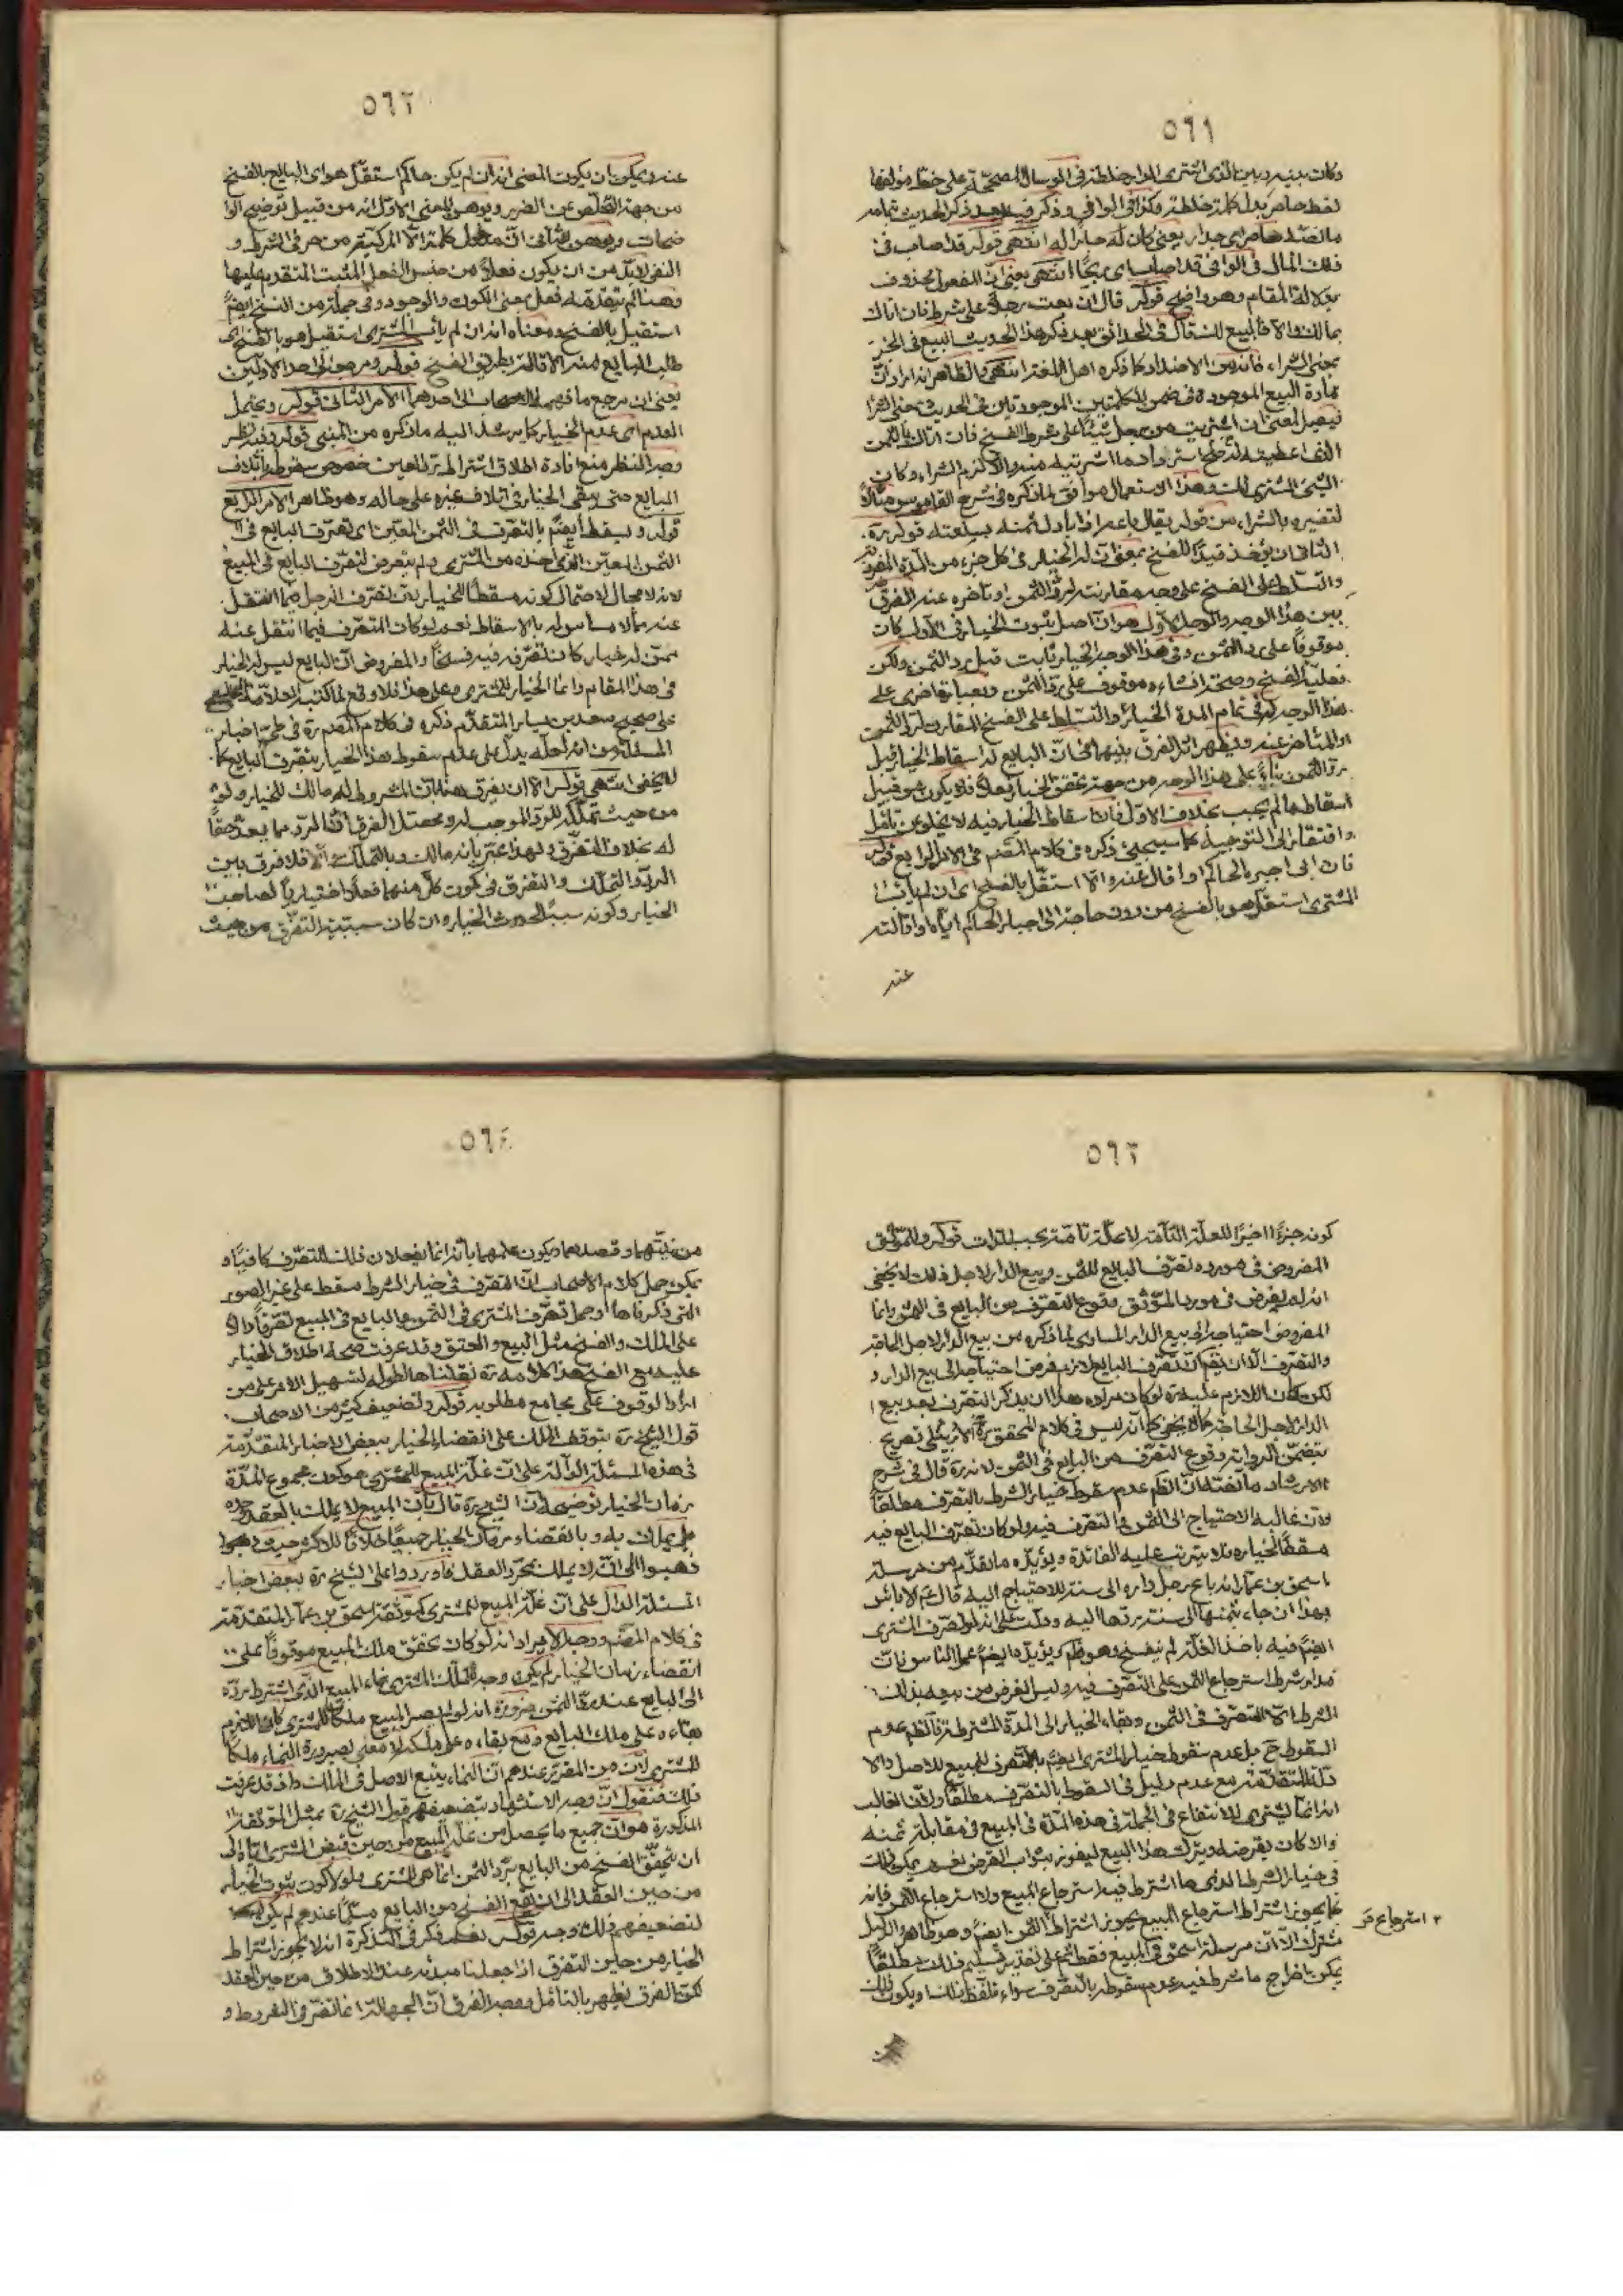 ٥٦١
وكان بينه وبين الذي اشترى المواخلطة في الوسائل المصححة على خط مؤلفها
لفظ حاصر بدل كلمة خلطة وكذا في الوافي وذكر فيه بعد ذكر الحديث تمامه
ما لفظه حاصر اى جدار يعنى كان له جارا له انتهى قوله قد اصاب فى
ذلك المال فى الوافى قد اصاب اى ربحا انتهى يعنى ان المفعول محذوف
بدلالة المقام وهو واضح قوله قال ان بعت رجلا على شرط فان اتاك
بمالك والا فالبيع لك قال فى الحدائق بعد ذكر هذا الحديث البيع فى الخبر
بمعنى الشراء فانه من الاضداد كما ذكره اهل اللغة انتهى والظاهر انه اراد ان
مادة البيع الموجودة فى ضمن الكلمتين الموجودتين فى الحديث بمعنى الشرا
فيصير المعنى ان اشتريت من رجل شيئا على شرط الفسخ فان اتاك بالثمن
الذى اعطيته له استرداد ما اشتريته منه والا لزم الشراء وكان
الشئ المشترى لك وهذا الاستعمال موافق لما ذكره فى شرح القاموس
لتفسيره بالشراء من قوله يقال باعه اذا بادل ثمنه بسلعته قوله ره
الثانى ان يؤخذ قيدا للفسخ بمعنى ان له الخيار فى كل جزء من المدة المضروبة
والتسلط على الفسخ على وجه مقارنته لرد الثمن او تاخره عنه الفرق
بين هذا الوجه والوجه الاول هو ان اصل ثبوت الخيار فى الاول كان
موقوفا على رد الثمن وفى هذا الوجه الخيار ثابت قبل رد الثمن ولكن
فعلية الفسخ وصحة انشاءه موقوف على رد الثمن
هذا الوجه فى تمام المدة الخيار والتسلط على الفسخ المقارن لرد الثمن
او المتاخر عنه ويظهر اثر الفرق بينهما فى ان البايع له اسقاط الخيار قبل
رد الثمن بناء على هذا الوجه من جهة تحقق الخيار فعلا فلا يكون من قبيل
اسقاط ما لم يجب بخلاف الاول فان اسقاط الخيار فيه لا يخلو عن تامل
وافتقار الى التوجيه كما سيجئ ذكره فى كلام المصنف فى الامر الرابع قوله
فان ابى اجبره الحاكم او اقال عنه والا استقل بالفسخ اى ان لم يات
المشترى استقل هو بالفسخ من دون حاجة الى اجبار الحاكم اياه او اقالته
عنه
٥٦٢
عنه ويمكن ان يكون المعنى انه ان لم يكن حاكم استقل هو اى البايع بالفسخ
من جهة التخلص عن الضرر ويوهن المعنى الاول انه من قبيل توضيح الوا
ضحات ويوهن الثانى ان مدخول كلمة الا المركبة من حرفى الشرط و
النفى لابد من ان يكون فعلا من جنس الفعل المثبت المتقدم عليها
وهنا لم يتقدمه فعل بمعنى الكون والوجود وفى جملة من النسخ ايضا
استقيل بالفسخ ومعناه انه ان لم يات المشترى استقيل هو بالفسخ اى
طلب البايع منه الاقالة بطريق الفسخ قوله ومرجعه الى احد الاولين
يعنى ان مرجع ما فهمه الاصحاب الى احدهما الامر الثانى قوله ويحتمل
العدم اى عدم الخيار كما يرشد اليه ما ذكره من المبنى قوله وفيه نظر
وجه النظر منع افادة اطلاق اشتراطه رد العين خصوص سقوطه باتلاف
المبايع حتى يبقى الخيار فى اتلاف غيره على حاله وهو ظاهر الامر الرابع
قوله ويسقط ايضا بالتصرف فى الثمن المعين اى تصرف البايع فى
الثمن المعين الذى اخذه من المشترى ولم يتعرض لتصرف البايع فى المبيع
لانه لا مجال لاحتمال كونه مسقطا للخيار لان تصرف الرجل فيما انتقل
عنه مما لا مساس له بالاسقاط نعم لو كان المتصرف فيما انتقل عنه
ممن له خيار كان تصرفه فيه فسخا والمفروض ان البايع ليس له الخيار
فى هذا المقام وانما الخيار للمشترى وعلى هذا فلا وقع لما كتبه العلامة
على صحيح سعد بن يسار المتقدم ذكره فى كلام المصنف ره فى طى اخبار
المسئلة من انه لعله يدل على عدم سقوط هذا الخيار بتصرف البايع كما
لا يخفى انتهى قوله الا ان يفرق هنا بان المشروط له مالك للخيار ولو
من حيث تملكه للرد الموجب له ومحصل الفرق ان الرد مما يعد حقا
له بخلاف التفرق ولهذا عبر بانه مالك وبالتملك والا فلا فرق بين
الرد والتملك والتفرق فى كون كل منهما فعلا اختياريا لصاحب
الخيار وكونه سببا لحدوث الخيار وان كان سببية التفرق من حيث
٥٦٣
كونه جزءا اخيرا للعلة التامة لا علة تامة بحسب الذات قوله وللموثق
المفروض فى مورده تصرف البايع للثمن وبيع الدار لاجل ذلك لا يخفى
انه لم يفرض فى مورد الموثق وقوع التصرف من البايع فى الثمن وانما
المفروض احتياجه الى بيع الدار المساوى لما ذكره من بيع الدار لاجل الحاجة
والتصرف الا ان يقال ان تصرف البايع لازم فرض احتياجه الى بيع الدار و
لكن كان اللازم عليه ره لو كان مراده هذا ان يذكر التصرف بعد بيع
الدار لاجل الحاجة كما لا يخفى كما انه ليس فى كلام المحقق الاردبيلى تصريح
بتضمن الرواية وقوع التصرف من البايع فى الثمن لانه ره قال فى شرح
الارشاد ما لفظه ان الظاهر عدم سقوط خيار الشرط بالتصرف مطلقا
لان غالبه الاحتياج الى الثمن والتصرف فيه ولو كان تصرف البايع فيه
مسقطا لخياره فلا يترتب عليه الفائدة ويؤيده ما تقدم من مرسلة
اسحق بن عمار انه باع رجل داره الى سنة للاحتياج اليه قال ع لا باس
بهذا ان جاء بثمنها الى سنة ردها اليه ودلت على انه لو تصرف المشترى
ايضا فيه باخذ الغلة لم ينفسخ وهو ظاهر ويؤيده ايضا عمل الناس فان
مدار شرط استرجاع الثمن على التصرف فيه وليس الغرض من بيعه بذلك
الشرط الا التصرف فى الثمن وبقاء الخيار الى المدة المشترطة فالظاهر عدم
السقوط ح بل عدم سقوط خيار المشترى ايضا بالتصرف للمبيع للاصل والا
دلة المتقدمة مع عدم دليل فى السقوط بالتصرف مطلقا ولان الغالب
انه انما يشترى للانتفاع فى الجملة فى هذه المدة فى المبيع فى مقابلة ثمنه
والا كان يقرضه ويترك هذا البيع ليفوز بثواب القرض نعم يمكن ذلك
فى خيار الشرط الذى ما اشترط فيه استرجاع المبيع ولا استرجاع الثمن فانه
كما يجوز اشتراط استرجاع المبيع يجوز اشتراط الثمن ايضا وهو ظاهر والدليل
مشترك الا ان مرسلة اسحق فى المبيع فقط ثم على تقدير تسليم ذلك مطلقا
يمكن اخراج ما شرط فيه عدم سقوطه بالتصرف سواء تلفظ بذلك او يكون ذلك
استرجاع
من
٥٦٤
من نيتهما وقصدهما ويكون علمهما بانه انما يفعلان ذلك للتصرف كافيا و
يمكن حمل كلام الاصحاب ان التصرف فى خيار الشرط مسقط على غير الصور
التى ذكرناها او حمل تصرف المشترى فى الثمن والبايع فى المبيع تصرفا دالا
على الملك والفسخ مثل البيع والعتق وقد عرفت صحة اطلاق الخيار
عليه مع الفسخ هذا كلامه ره نقلناها لطوله لتسهيل الامر على من
اراد الوقوف على مجامع مطلوبه قوله وتضعيف كثير من الاصحاب
قول الشيخ ره بتوقف الملك على انقضاء الخيار ببعض الاخبار المتقدمة
فى هذه المسئلة الدالة على ان غلة المبيع للمشترى هو كون مجموع المدة
زمان الخيار توضيحه ان الشيخ ره قال بان المبيع لا يملك بالعقد وحده
بل يملك به وبانقضاء زمان الخيار جميعا خلافا للاكثر حيث
ذهبوا الى انه يملك بمجرد العقد فاوردوا على الشيخ ره ببعض اخبار
المسئلة الدال على ان غلة المبيع للمشترى كموثقة اسحق بن عمار المتقدمة
فى كلام المصنف ووجه الايراد انه لو كان تحقق ملك المبيع موقوفا على
انقضاء زمان الخيار لم يكن وجه لتملك المشترى نماء المبيع الذى اشترط رده
الى البايع عند رد الثمن ضرورة انه لو لم يصر المبيع ملكا للمشترى كان اللازم
بقاءه على ملك البايع ومع بقاءه على ملكه لا معنى لصيرورة النماء ملكا
للمشترى لان من المقرر عندهم ان النماء يتبع الاصل فى الملك واذ قد عرفت
ذلك فنقول ان وجه الاستشهاد بتضعيفهم قول الشيخ ره بمثل الموثقة
المذكورة هو ان جميع ما يحصل من غلة المبيع من حين قبض المشترى اياه الى
ان يتحقق الفسخ من البايع برد الثمن انما هى للمشترى ولولا كون ثبوت الخيار
من حين العقد الى ان يقع الفسخ من البايع مسلما عندهم لم يكن
لتضعيفهم ذلك وجه قوله نعم ذكر فى التذكرة انه لا يجوز اشتراط
الخيار من حين التفرق اذا جعلنا مبدئه عند الاطلاق من حين العقد
لكن الفرق يظهر بالتامل ووجه الفرق ان الجهالة انما تضر فى الشروط و